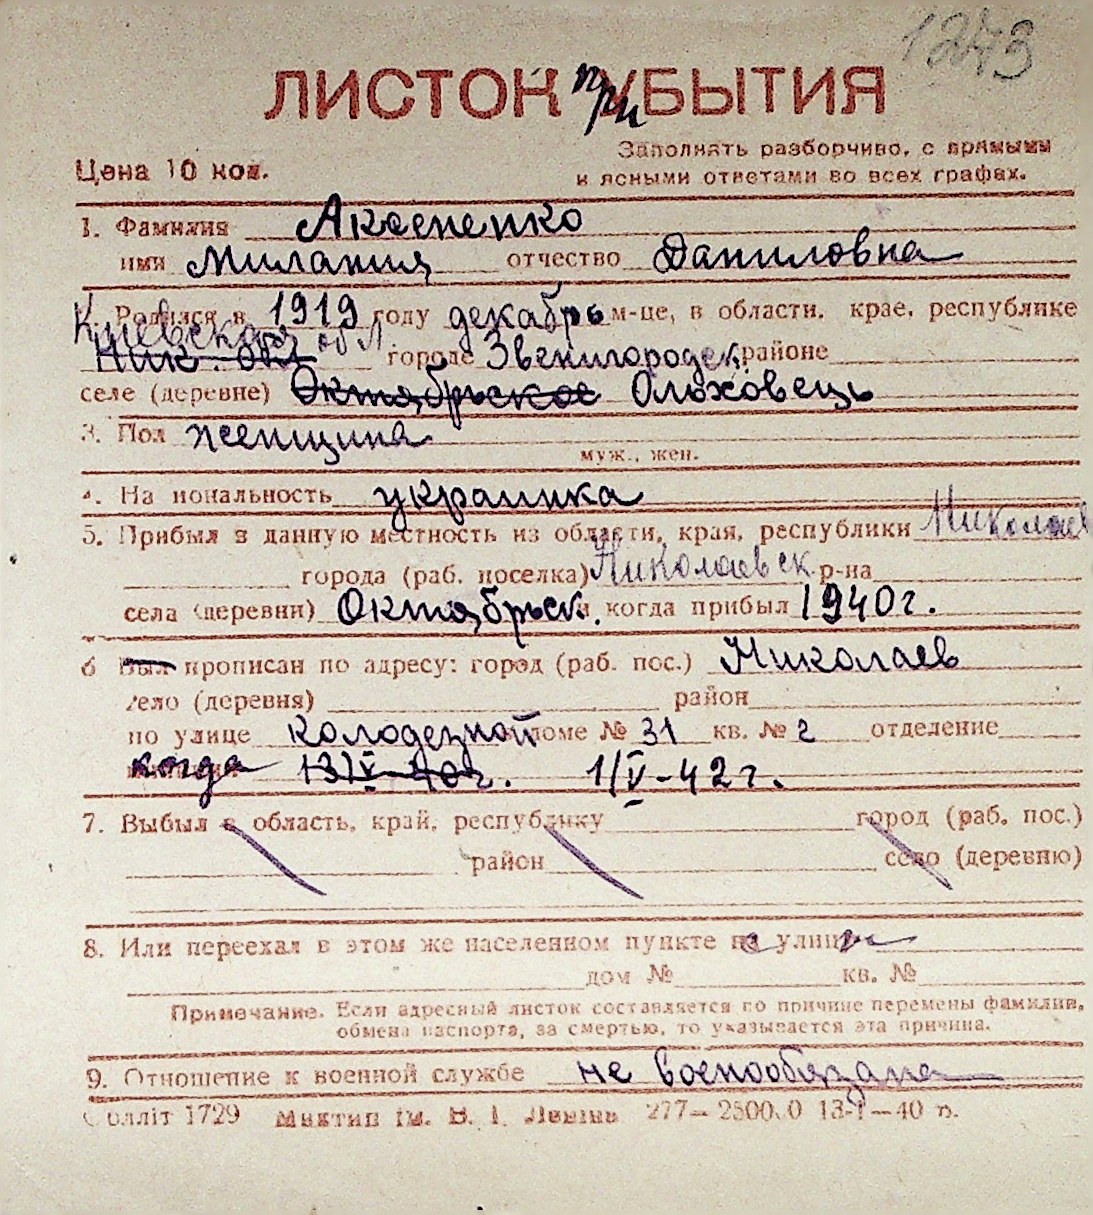 1273
ЛИСТОК при УБЫТИЯ
Цена 10 коп.
Заполнять разборчиво, с прямыми
и ясными ответами во всех графах.
1. Фамилия Аксененко
имя Милания отчество Даниловна
Родился в 1919 году декабрь м-це, в области, крае, республике
Киевская обл.
Ник. обл городе Звенигородск районе
селе (деревне) Октябрьское Ольховець
3. Пол женщина
муж., жен.
4. На иональность украинка
5. Прибыл в данную местность из области, края, республики Николаев
города (раб. поселка) Николаевск р-на
села (деревни) Октябрьск. и когда прибыл 1940 г.
6 Был прописан по адресу: город (раб. пос.) Николаев
село (деревня) район
по улице колодезной доме № 31 кв. № 2 отделение
когда 13/V-40г. 1/V-42 г.
7. Выбыл в область, край, республику город (раб. пос.)
район село (деревню)
8. Или переехал в этом же населенном пункте на улицу
дом № кв. №
Примечание. Если адресный листок составляется по причине перемены фамилии,
обмена паспорта, за смертью, то указывается эта причина.
9. Отношение к военной службе не военнообязана
Облліт 1729 Миктип ім. В. І. Леніна 277— 2500.0 13-І—40 р.